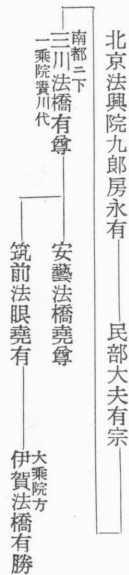 北京法興院九郎房永有
民部大夫有宗
南都ニ下
三川法橋有尊
一乘院賽川代
安藝法橋堯尊
筑前法眼堯有
大乘院方
伊賀法橋有勝